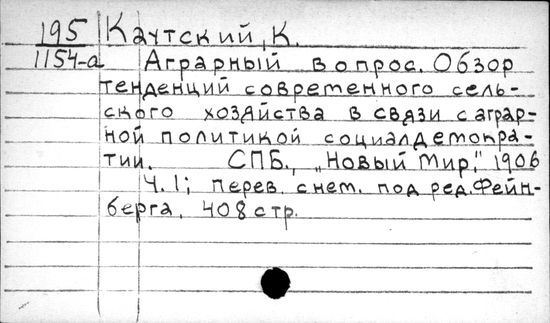 195 Каутский, К.
1154-а Аграрный вопрос. Обзор
тенденций современного сель-
ского хозяйства в связи с аграр-
ной политикой социалдемокра-
тии. СПБ., „Новый Мир," 1906
Ч. 1; перев. с нем. под ред. Фейн-
берга. 408 стр.